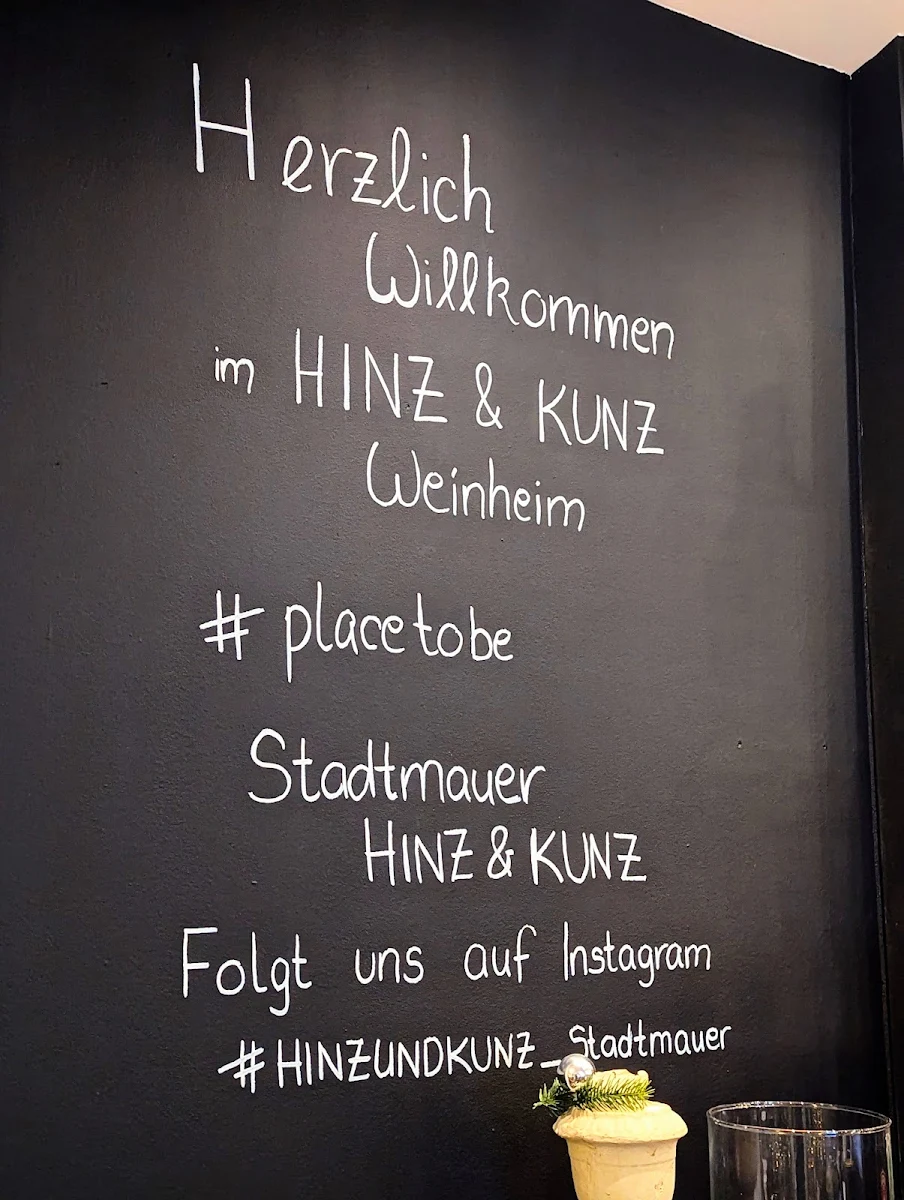 Herzlich
Willkommen
im HINZ & KUNZ
Weinheim
# placetobe
Stadtmauer
HINZ & KUNZ
Folgt uns auf Instagram
# HINZUNDKUNZ_Stadtmauer